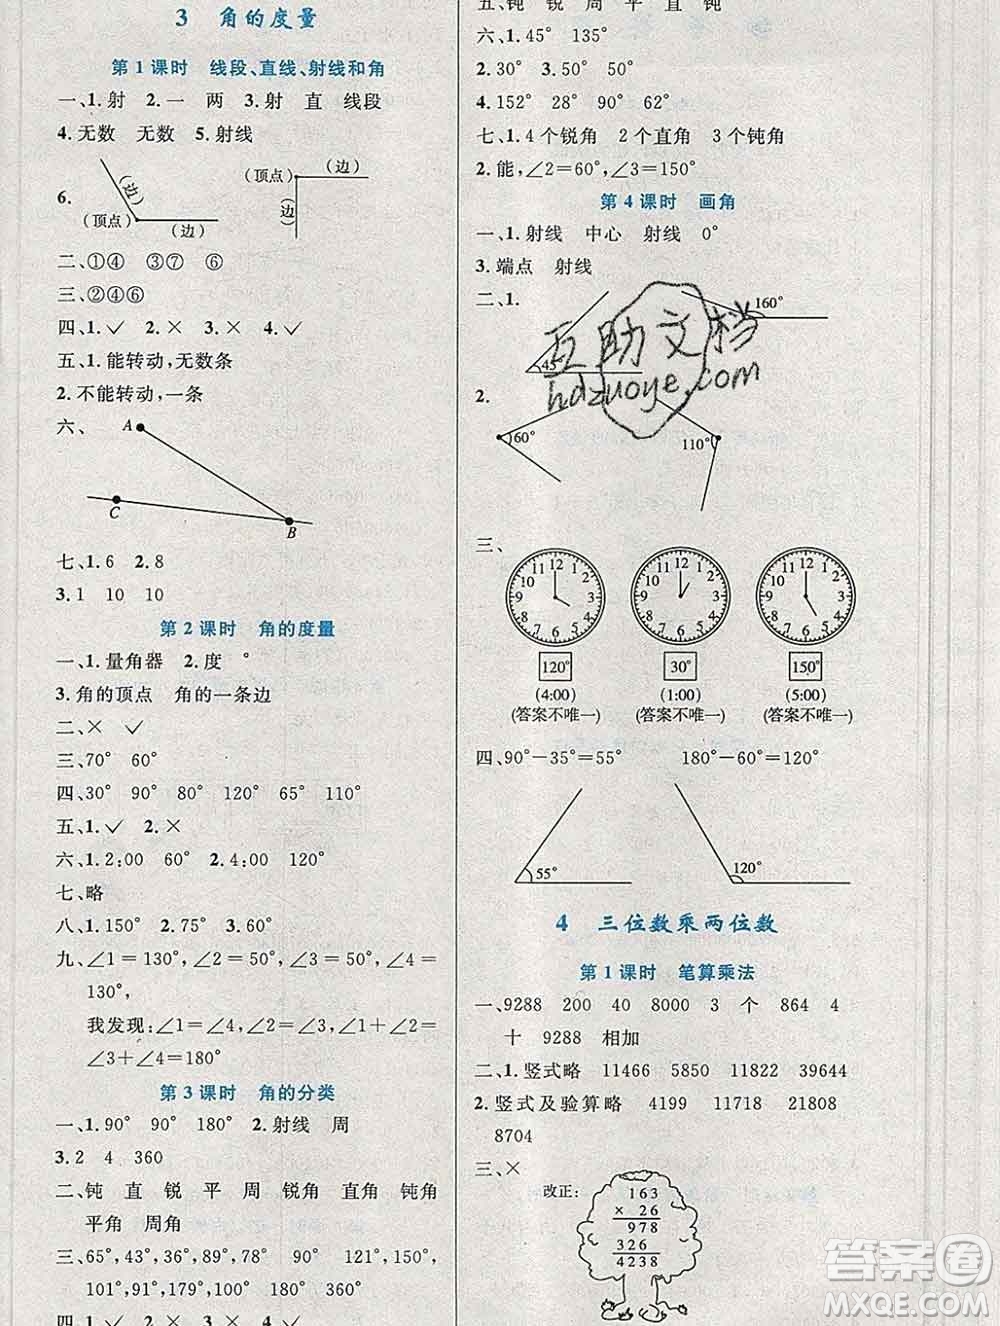 3 角的度量
第1课时 线段、直线、射线和角
一、1.射 2.一 两 3.射 直 线段
4.无数 无数 5.射线
6.
(边)
(顶点)
(边)
(顶点)
(边)
(边)
二、①④ ③⑦ ⑥
三、②④⑥
四、1.✓ 2.× 3.× 4.✓
五、1.能转动,无数条
2.不能转动,一条
六、
A
C
B
七、1.6 2.8
3.1 10 10
第2课时 角的度量
一、1.量角器 2.度 °
3.角的顶点 角的一条边
二、× ✓
三、70° 60°
四、30° 90° 80° 120° 65° 110°
五、1.✓ 2.×
六、1.2:00 60° 2.4:00 120°
七、略
八、1.150° 2.75° 3.60°
九、∠1=130°,∠2=50°,∠3=50°,∠4=
130°,
我发现:∠1=∠4,∠2=∠3,∠1+∠2=
∠3+∠4=180°
第3课时 角的分类
一、1.90° 90° 180° 2.射线 周
3.2 4 360
二、钝 直 锐 平 周 锐角 直角 钝角
平角 周角
三、65°,43°,36°,89°,78° 90° 121°,150°,
101°,91°,179°,100° 180° 360°
四、1.✓ 2.× 3.✓
五、钝 锐 周 平 直 钝
六、1.45° 135°
2.30° 3.50° 50°
4.152° 28° 90° 62°
七、1.4个锐角 2个直角 3个钝角
2.能,∠2=60°,∠3=150°
第4课时 画角
一、1.射线 中心 射线 0°
3.端点 射线
二、1.
45°
160°
互助文档
hdzuoye.com
2.
60°
110°
三、
12 1 2 3 4 5 6 7 8 9 10 11
12 1 2 3 4 5 6 7 8 9 10 11
12 1 2 3 4 5 6 7 8 9 10 11
120° 30° 150°
(4:00) (1:00) (5:00)
(答案不唯一) (答案不唯一) (答案不唯一)
四、90°-35°=55° 180°-60°=120°
55°
120°
4 三位数乘两位数
第1课时 笔算乘法
一、9288 200 40 8000 3 个 864 4
十 9288 相加
二、1.竖式略 11466 5850 11822 39644
2.竖式及验算略 4199 11718 21808
8704
三、×
改正:
163
× 26
978
326
4238
答案圈
MXQE.COM